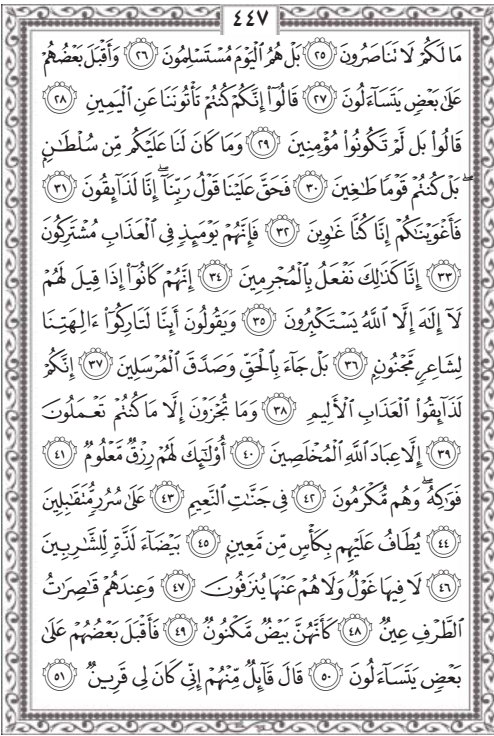 ٤٤٧
مَا لَكُمْ لَا تَنَاصَرُونَ ۝٢٥ بَلْ هُمُ ٱلْيَوْمَ مُسْتَسْلِمُونَ ۝٢٦ وَأَقْبَلَ بَعْضُهُمْ
عَلَىٰ بَعْضٍ يَتَسَآءَلُونَ ۝٢٧ قَالُوٓا۟ إِنَّكُمْ كُنتُمْ تَأْتُونَنَا عَنِ ٱلْيَمِينِ ۝٢٨
قَالُوا۟ بَل لَّمْ تَكُونُوا۟ مُؤْمِنِينَ ۝٢٩ وَمَا كَانَ لَنَا عَلَيْكُم مِّن سُلْطَـٰنٍۭ
ۖ بَلْ كُنتُمْ قَوْمًا طَـٰغِينَ ۝٣٠ فَحَقَّ عَلَيْنَا قَوْلُ رَبِّنَآ ۖ إِنَّا لَذَآئِقُونَ ۝٣١
فَأَغْوَيْنَـٰكُمْ إِنَّا كُنَّا غَـٰوِينَ ۝٣٢ فَإِنَّهُمْ يَوْمَئِذٍ فِى ٱلْعَذَابِ مُشْتَرِكُونَ
۝٣٣ إِنَّا كَذَٰلِكَ نَفْعَلُ بِٱلْمُجْرِمِينَ ۝٣٤ إِنَّهُمْ كَانُوٓا۟ إِذَا قِيلَ لَهُمْ
لَآ إِلَـٰهَ إِلَّا ٱللَّهُ يَسْتَكْبِرُونَ ۝٣٥ وَيَقُولُونَ أَئِنَّا لَتَارِكُوٓا۟ ءَالِهَتِنَا
لِشَاعِرٍ مَّجْنُونٍۭ ۝٣٦ بَلْ جَآءَ بِٱلْحَقِّ وَصَدَّقَ ٱلْمُرْسَلِينَ ۝٣٧ إِنَّكُمْ
لَذَآئِقُوا۟ ٱلْعَذَابِ ٱلْأَلِيمِ ۝٣٨ وَمَا تُجْزَوْنَ إِلَّا مَا كُنتُمْ تَعْمَلُونَ
۝٣٩ إِلَّا عِبَادَ ٱللَّهِ ٱلْمُخْلَصِينَ ۝٤٠ أُو۟لَـٰٓئِكَ لَهُمْ رِزْقٌ مَّعْلُومٌ ۝٤١
فَوَٰكِهُ ۖ وَهُم مُّكْرَمُونَ ۝٤٢ فِى جَنَّـٰتِ ٱلنَّعِيمِ ۝٤٣ عَلَىٰ سُرُرٍ مُّتَقَـٰبِلِينَ
۝٤٤ يُطَافُ عَلَيْهِم بِكَأْسٍ مِّن مَّعِينٍۭ ۝٤٥ بَيْضَآءَ لَذَّةٍ لِّلشَّـٰرِبِينَ
۝٤٦ لَا فِيهَا غَوْلٌ وَلَا هُمْ عَنْهَا يُنزَفُونَ ۝٤٧ وَعِندَهُمْ قَـٰصِرَٰتُ
ٱلطَّرْفِ عِينٌ ۝٤٨ كَأَنَّهُنَّ بَيْضٌ مَّكْنُونٌ ۝٤٩ فَأَقْبَلَ بَعْضُهُمْ عَلَىٰ
بَعْضٍ يَتَسَآءَلُونَ ۝٥٠ قَالَ قَآئِلٌ مِّنْهُمْ إِنِّى كَانَ لِى قَرِينٌ ۝٥١